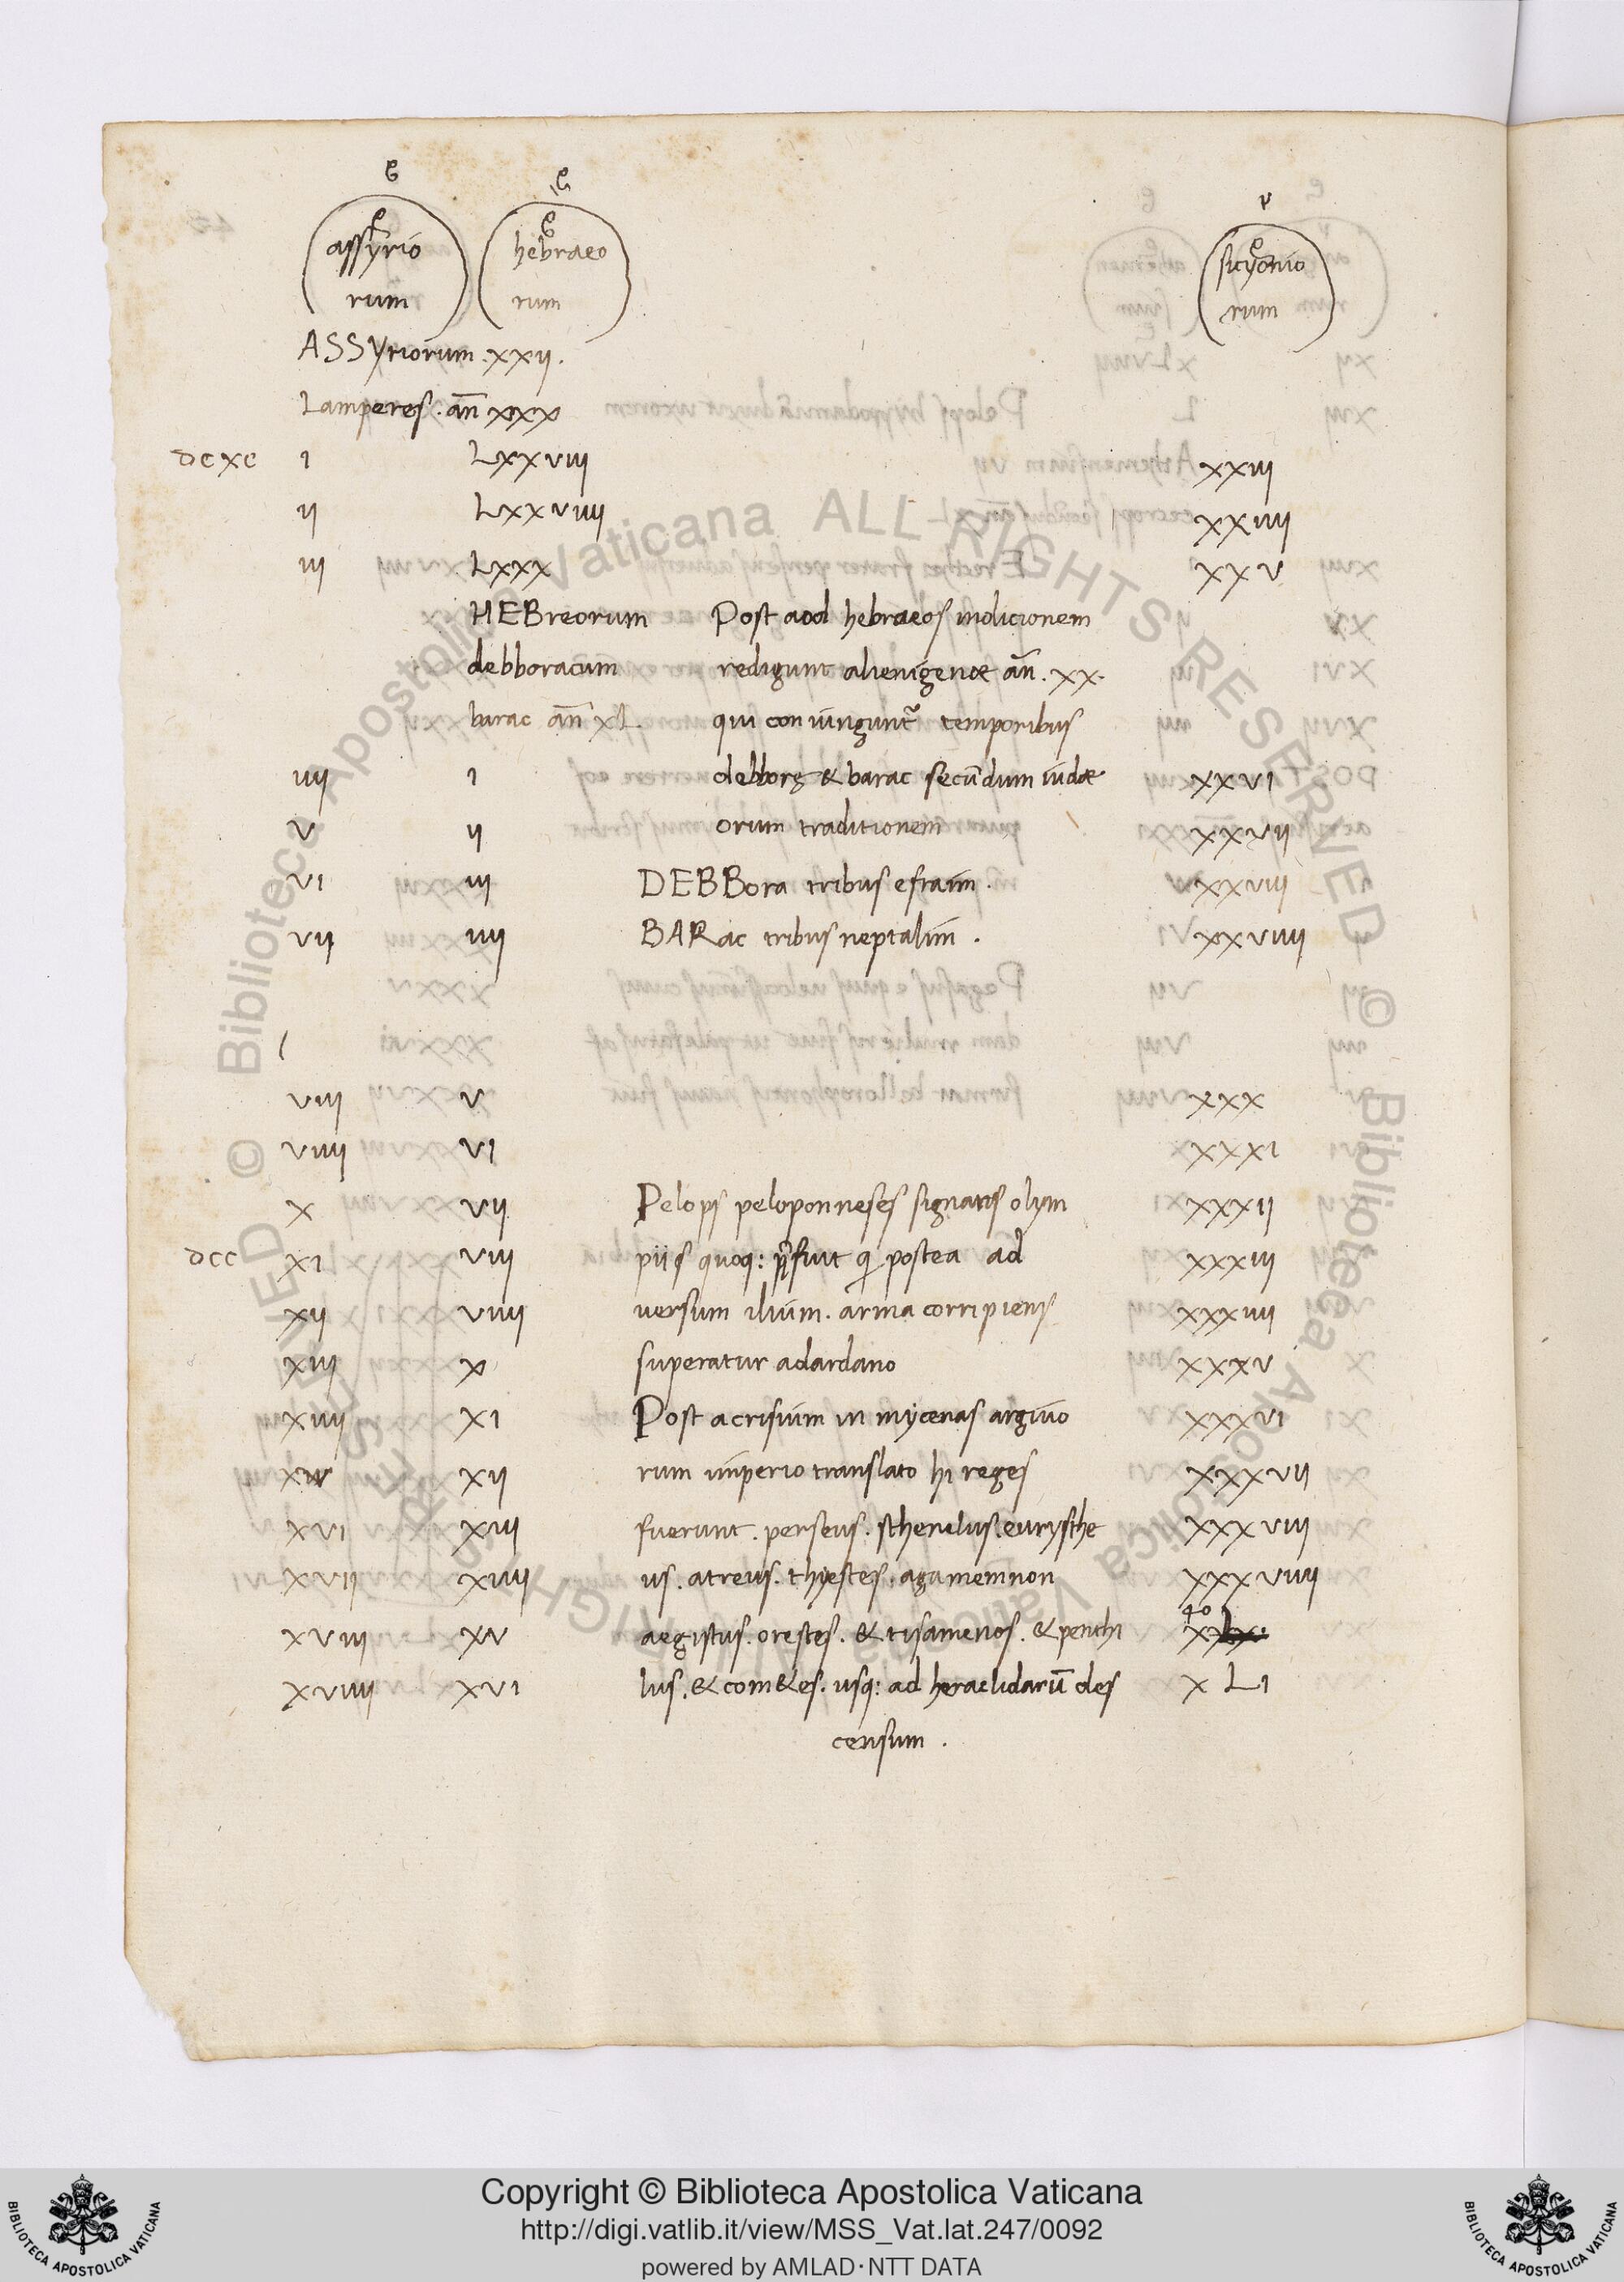 assyrio hebraeo sicyonio
rum rum rum
ASSYriorum . xxii .
Lamperes . an̄ xxx
dcxc i Lxxviii xxiii
ii Lxxviiii xxiiii
iii Lxxx xxv
HEBreorum Post aod hebraeos indicionem
debboracum redigunt alienigenae an̄ . xx .
barac an̄ xL . qui con iungunt᷑ temporibus
iiii i debborę & barac secūdum iudae xxvi
v ii orum traditionem xxvii
vi iii DEBBora tribus efraim . xxviii
vii iiii BARac tribus neptalim . xxviiii
viii v xxx
viiii vi xxxi
x vii Pelops peloponneses signatis olym xxxii
dcc xi viii piis quoq: p̄fuit q postea ad xxxiii
xii viiii versum ilium . arma corripiens xxxiiii
xiii x superatur adardano xxxv
xiiii xi Post acrisium in mycenas argiuo xxxvi
xv xii rum imperio translato hi reges xxxvii
xvi xiii fuerunt . perseus . sthenelus . eurysthe xxxviii
xvii xiiii us . atreus . thyestes . agamemnon xxxviiii
40
xviii xv aegistus . orestes . & tisamenos . & penthi
xviiii xvi lus . & com&es . usq: ad heraclidarū des x Li
censum .
Copyright © Biblioteca Apostolica Vaticana
http://digi.vatlib.it/view/MSS_Vat.lat.247/0092
powered by AMLAD·NTT DATA
BIBLIOTECA APOSTOLICA VATICANA
BIBLIOTECA APOSTOLICA VATICANA
© Biblioteca Apostolica Vaticana ALL RIGHTS RESERVED © Biblioteca Apostolica Vaticana ALL RIGHTS RESERVED